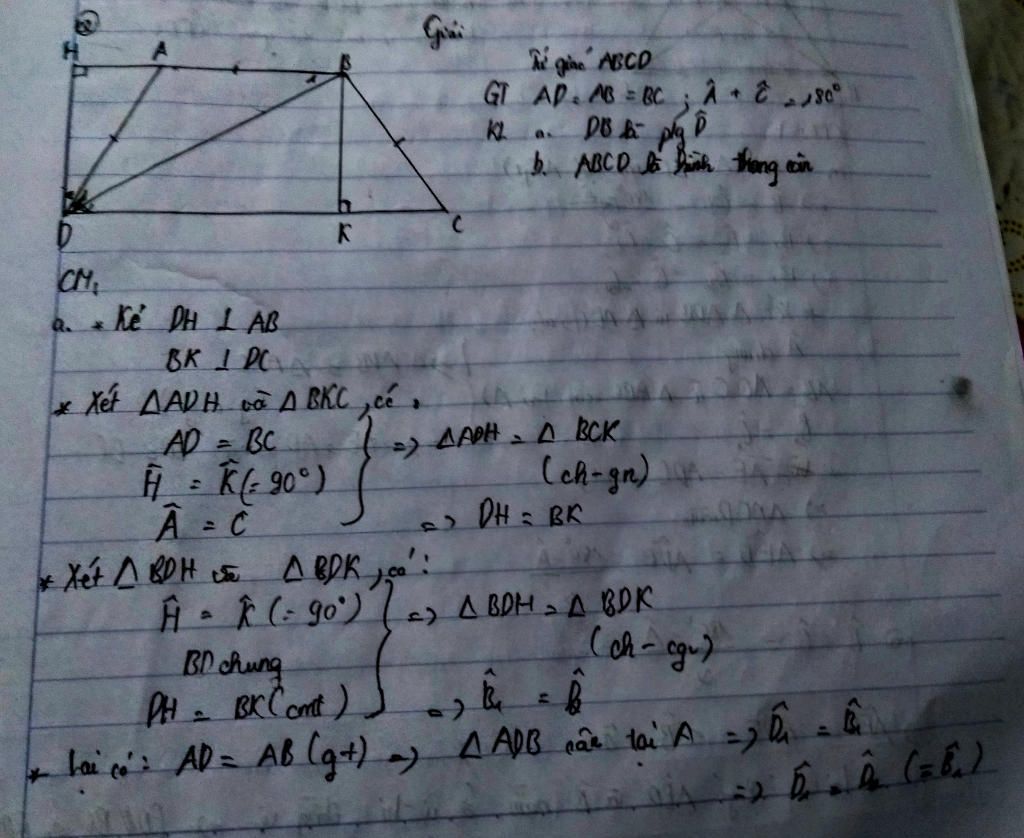 Giải
H A B
Tứ giác ABCD
GT AD = AB = BC ; Â + Ĉ = 180°
KL a. DB là p/g D̂
b. ABCD là hình thang cân
D K C
CM:
a. * Kẻ DH ⊥ AB
BK ⊥ DC
* Xét ΔADH và ΔBKC, có:
AD = BC
Ĥ = K̂ (= 90°)
Â = Ĉ
=> ΔADH = Δ BCK
(ch - gn)
=> DH = BK
* Xét Δ BDH và Δ BDK, có:
Ĥ = K̂ (= 90°)
BD chung
DH = BK (cmt)
=> Δ BDH = Δ BDK
(ch - cgv)
=> B̂₁ =
* Lại có: AD = AB (gt) => Δ ADB cân tại A => D̂₁ = B̂₁
=> D̂₁ = D̂₂ (= B̂₁)